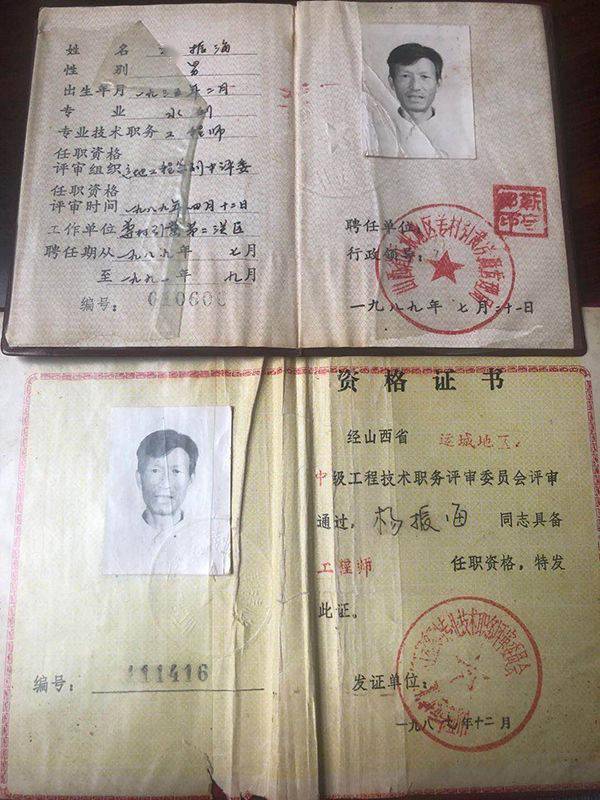 姓名 振海
性别 男
出生年月 一九三五年二月
专业 水利
专业技术职务 工程师
任职资格
评审组织
任职资格
评审时间 一九八九年四月十二日
工作单位 尊村引黄第二灌区
聘任期从一九八九年七月
至一九九一年九月
编号: 010600
聘任单位:
行政领导:
一九八九年七月二十一日
资格证书
经山西省 运城地区
中级工程技术职务评审委员会评审
通过, 杨振海 同志具备
工程师 任职资格, 特发
此证。
编号: 111416
发证单位:
一九八七年十二月